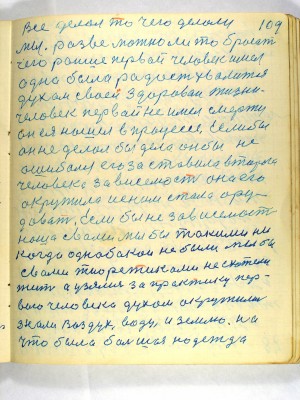 все делол то чего делоли 109
мы. розве можно ли то бросит
чего ранше первой человек имел
одно была радост хвалится
духом своей здоровой жизни.
человек первой не имел смерти,
он ея ношел в процессе, Если бы
он не делол бы дела он бы не
ошибался его заставила втакга
человека зависемост она его
окружила и с ним стала ору-
доват, если бы не зависемост
ноша свами, мы бы такими ни
когда однобокои не были мы бы
свами тиоретиками не схотели
жит а узялис за практику пер-
вого человека духом окружилис
знали воздух, воду и землю. на
что была болшая надежда